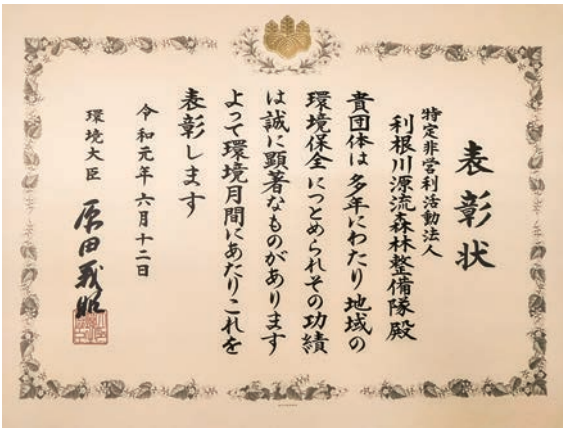 表彰状
特定非営利活動法人
利根川源流森林整備隊殿
貴団体は多年にわたり地域の
環境保全につとめられその功績
は誠に顕著なものがあります
よって環境月間にあたりこれを
表彰します
令和元年六月十二日
環境大臣
原田義昭